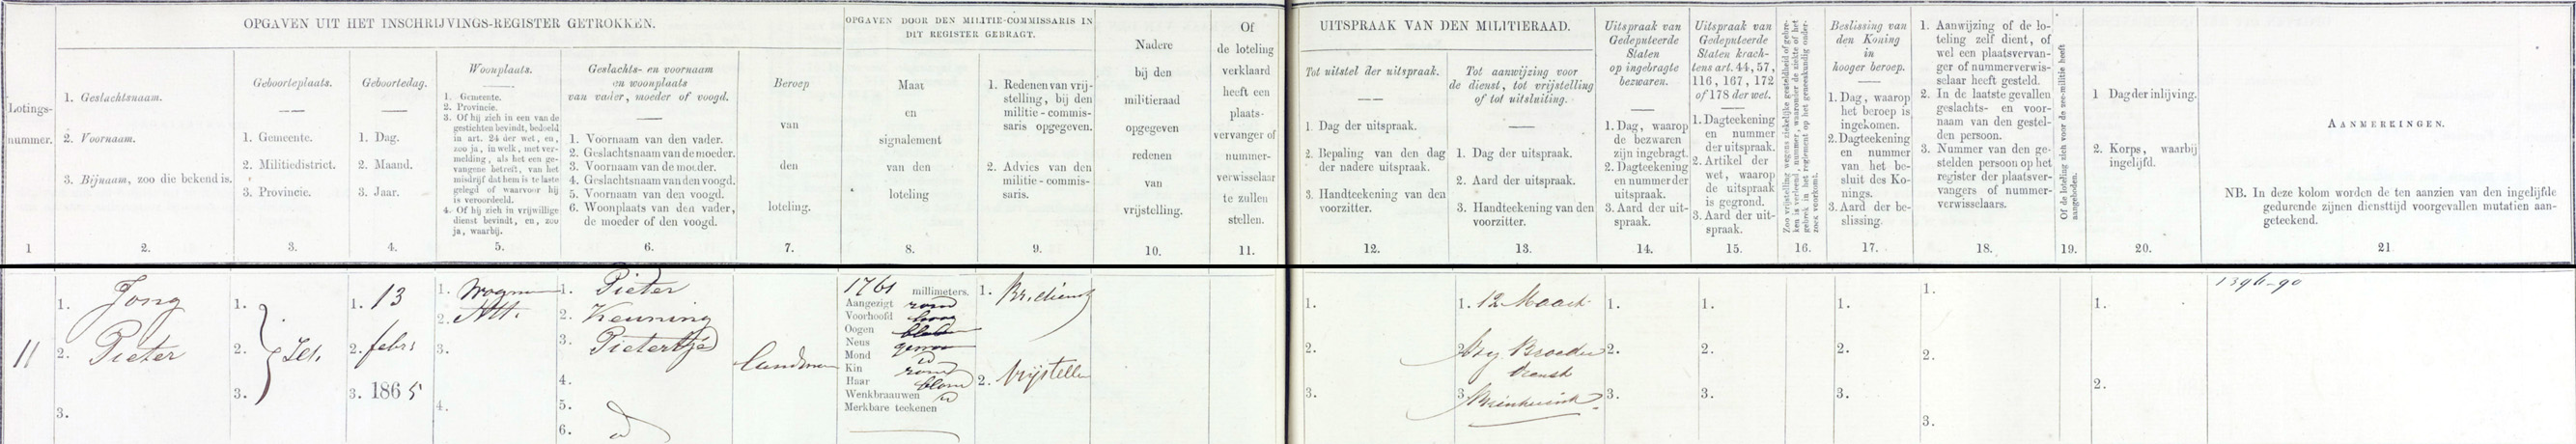 OPGAVEN UIT HET INSCHRIJVINGS-REGISTER GETROKKEN.
Lotings-
nummer.
1
1. Geslachtsnaam.
2. Voornaam.
3. Bijnaam, zoo die bekend is.
2.
Geboorteplaats.
1. Gemeente.
2. Militiedistrict.
3. Provincie.
3.
Geboortedag.
1. Dag.
2. Maand.
3. Jaar.
4.
Woonplaats.
1. Gemeente.
2. Provincie.
3. Of hij zich in een van de
gestichten bevindt, bedoeld
in art. 24 der wet, en,
zoo ja, in welk, met ver-
melding, als het een ge-
vangene betreft, van het
misdrijf dat hem is te laste
gelegd of waarvoor hij
is veroordeeld.
4. Of hij zich in vrijwillige
dienst bevindt, en, zoo
ja, waarbij.
5.
Geslachts- en voornaam
en woonplaats
van vader, moeder of voogd.
1. Voornaam van den vader.
2. Geslachtsnaam van de moeder.
3. Voornaam van de moeder.
4. Geslachtsnaam van den voogd.
5. Voornaam van den voogd.
6. Woonplaats van den vader,
de moeder of den voogd.
6.
Beroep
van
den
loteling.
7.
OPGAVEN DOOR DEN MILITIE-COMMISSARIS IN
DIT REGISTER GEBRAGT.
Maat
en
signalement
van den
loteling
8.
1. Redenen van vrij-
stelling, bij den
militie-commis-
saris opgegeven.
2. Advies van den
militie-commis-
saris.
9.
Nadere
bij den
militieraad
opgegeven
redenen
van
vrijstelling.
10.
Of
de loteling
verklaard
heeft een
plaats-
vervanger of
nummer-
verwisselaar
te zullen
stellen.
11.
UITSPRAAK VAN DEN MILITIERAAD.
Tot uitstel der uitspraak.
1. Dag der uitspraak.
2. Bepaling van den dag
der nadere uitspraak.
3. Handteekening van den
voorzitter.
12.
Tot aanwijzing voor
de dienst, tot vrijstelling
of tot uitsluiting.
1. Dag der uitspraak.
2. Aard der uitspraak.
3. Handteekening van den
voorzitter.
13.
Uitspraak van
Gedeputeerde
Staten
op ingebragte
bezwaren.
1. Dag, waarop
de bezwaren
zijn ingebragt.
2. Dagteekening
en nummer der
uitspraak.
3. Aard der uit-
spraak.
14.
Uitspraak van
Gedeputeerde
Staten krach-
tens art. 44, 57,
116, 167, 172
of 178 der wet.
1. Dagteekening
en nummer
der uitspraak.
2. Artikel der
wet, waarop
de uitspraak
is gegrond.
3. Aard der uit-
spraak.
15.
Zoo vrijstelling wegens ziekelijke gesteldheid of gebre-
ken is verleend, nummer, waaronder de ziekte of het
gebrek in het reglement op het geneeskundig onder-
zoek voorkomt.
16.
Beslissing van
den Koning
in
hooger beroep.
1. Dag, waarop
het beroep is
ingekomen.
2. Dagteekening
en nummer
van het be-
sluit des Ko-
nings.
3. Aard der be-
slissing.
17.
1. Aanwijzing of de lo-
teling zelf dient, of
wel een plaatsvervan-
ger of nummerverwis-
selaar heeft gesteld.
2. In de laatste gevallen
geslachts- en voor-
naam van den gestel-
den persoon.
3. Nummer van den ge-
stelden persoon op het
register der plaatsver-
vangers of nummer-
verwisselaars.
18.
Of de loteling zich voor de zee-militie heeft
aangeboden.
19.
1 Dag der inlijving.
2. Korps, waarbij
ingelijfd.
20.
AANMERKINGEN.
NB. In deze kolom worden de ten aanzien van den ingelijfde
gedurende zijnen diensttijd voorgevallen mutatien aan-
geteekend.
21
11
1. Jong
2. Pieter
3.
1.
2. Id.
3.
1. 13
2. febr
3. 1865
1. Wognum
2. Nh.
3.
4.
1. Pieter
2. Keuning
3. Pietertje
4.
5.
6.
landman
1761 millimeters.
Aangezigt rond
Voorhoofd hoog
Oogen blauw
Neus gewoon
Mond id
Kin rond
Haar blond
Wenkbraauwen id
Merkbare teekenen
1. Br. dienst
2. vrijstellen
1.
2.
3.
1. 12 Maart
2. Vrij Broeder
dienst
3.
1.
2.
3.
1.
2.
3.
1.
2.
3.
1.
2.
3.
1.
2.
1396-90